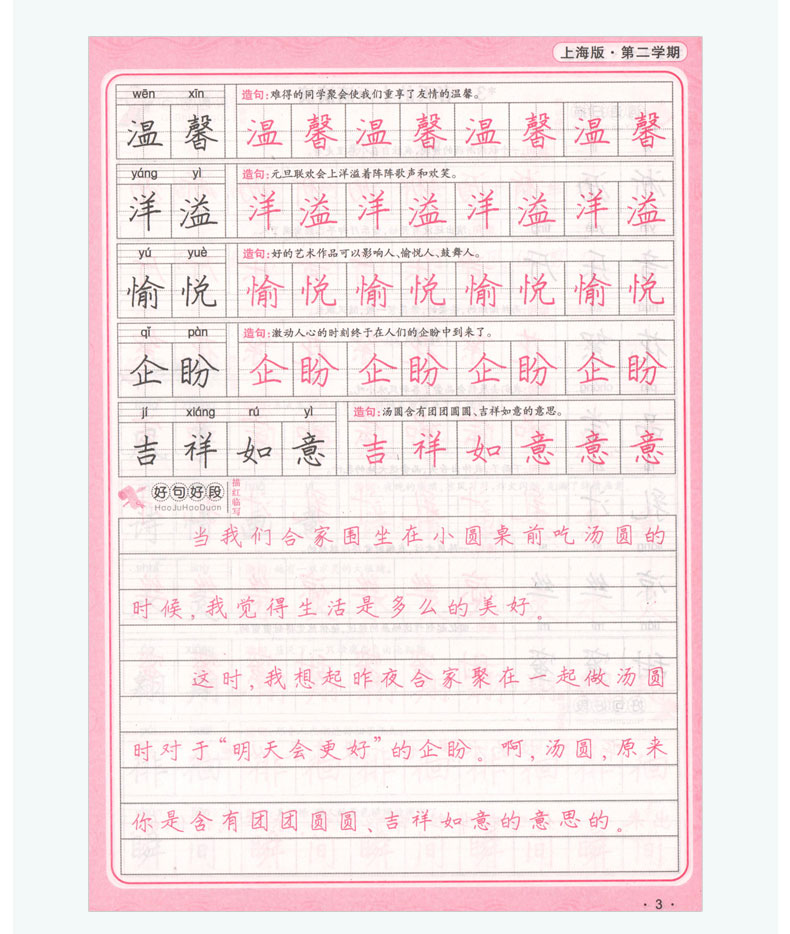 上海版·第二学期
wēn xīn
造句:难得的同学聚会使我们重享了友情的温馨。
温馨 温馨温馨温馨温馨
yáng yì
造句:元旦联欢会上洋溢着阵阵歌声和欢笑。
洋溢 洋溢洋溢洋溢洋溢
yú yuè
造句:好的艺术作品可以影响人、愉悦人、鼓舞人。
愉悦 愉悦愉悦愉悦愉悦
qǐ pàn
造句:激动人心的时刻终于在人们的企盼中到来了。
企盼 企盼企盼企盼企盼
jí xiáng rú yì
造句:汤圆含有团团圆圆、吉祥如意的意思。
吉祥如意 吉祥如意意意
好句好段
HaoJuHaoDuan
描红临写
当我们合家围坐在小圆桌前吃汤圆的
时候,我觉得生活是多么的美好。
这时,我想起昨夜合家聚在一起做汤圆
时对于“明天会更好”的企盼。啊,汤圆,原来
你是含有团团圆圆、吉祥如意的意思的。
·3·